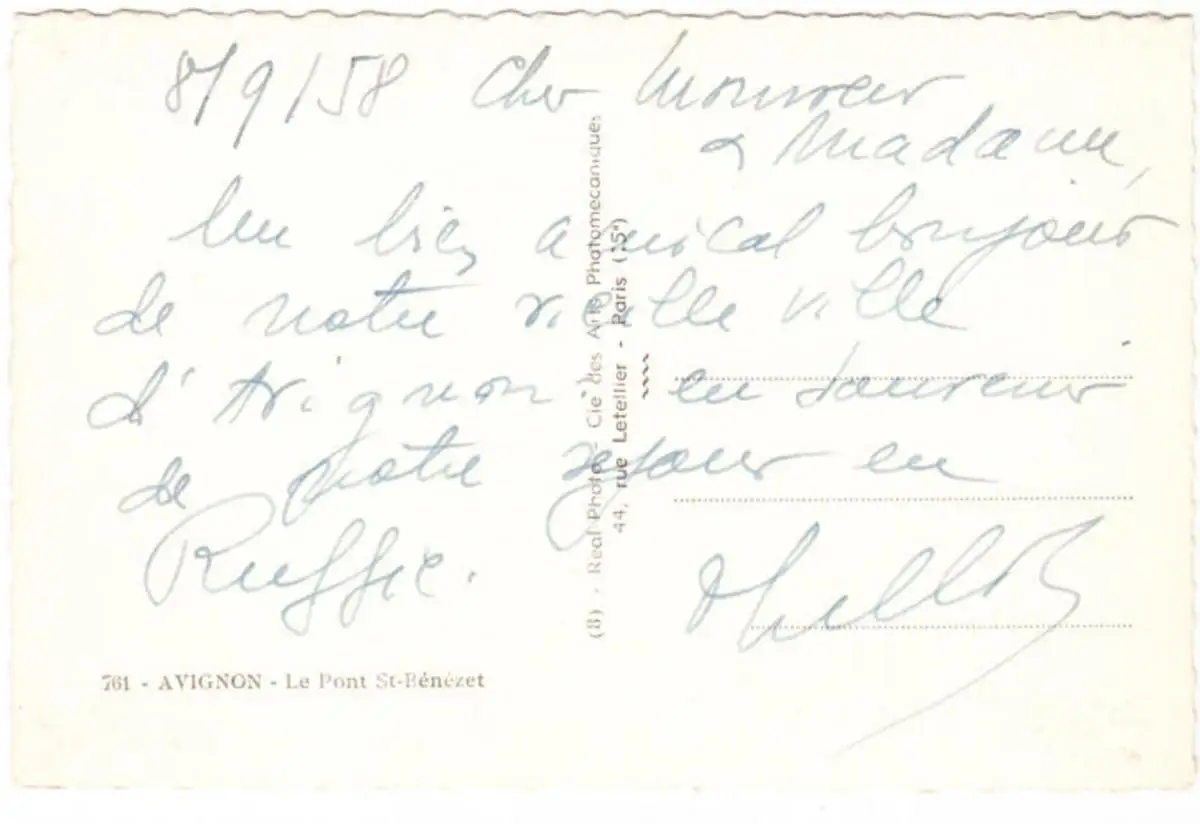 8/9/58 Cher Monsieur
& Madame,
Un bien amical bonjour
de notre vieille ville
d'Avignon en souvenir
de notre séjour en
Ruffie.
761 - AVIGNON - Le Pont St-Bénézet
(8) - Real-Photo - Cie des Arts Photomécaniques
44, rue Letellier - Paris (15e)